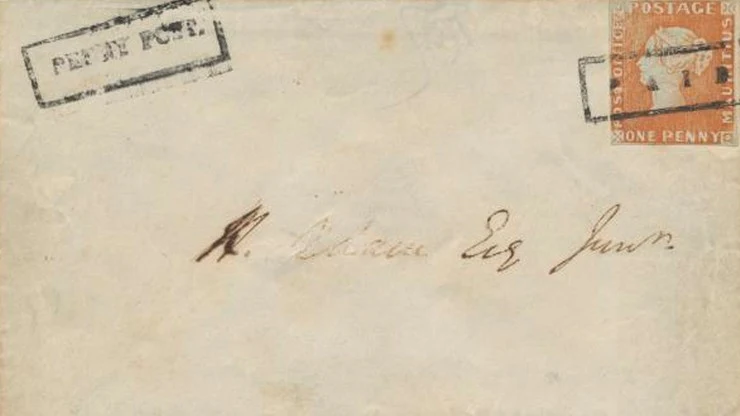 PENNY POST.
POSTAGE
POST OFFICE
MAURITIUS
PAID
ONE PENNY
H. Adam Esq Junr.